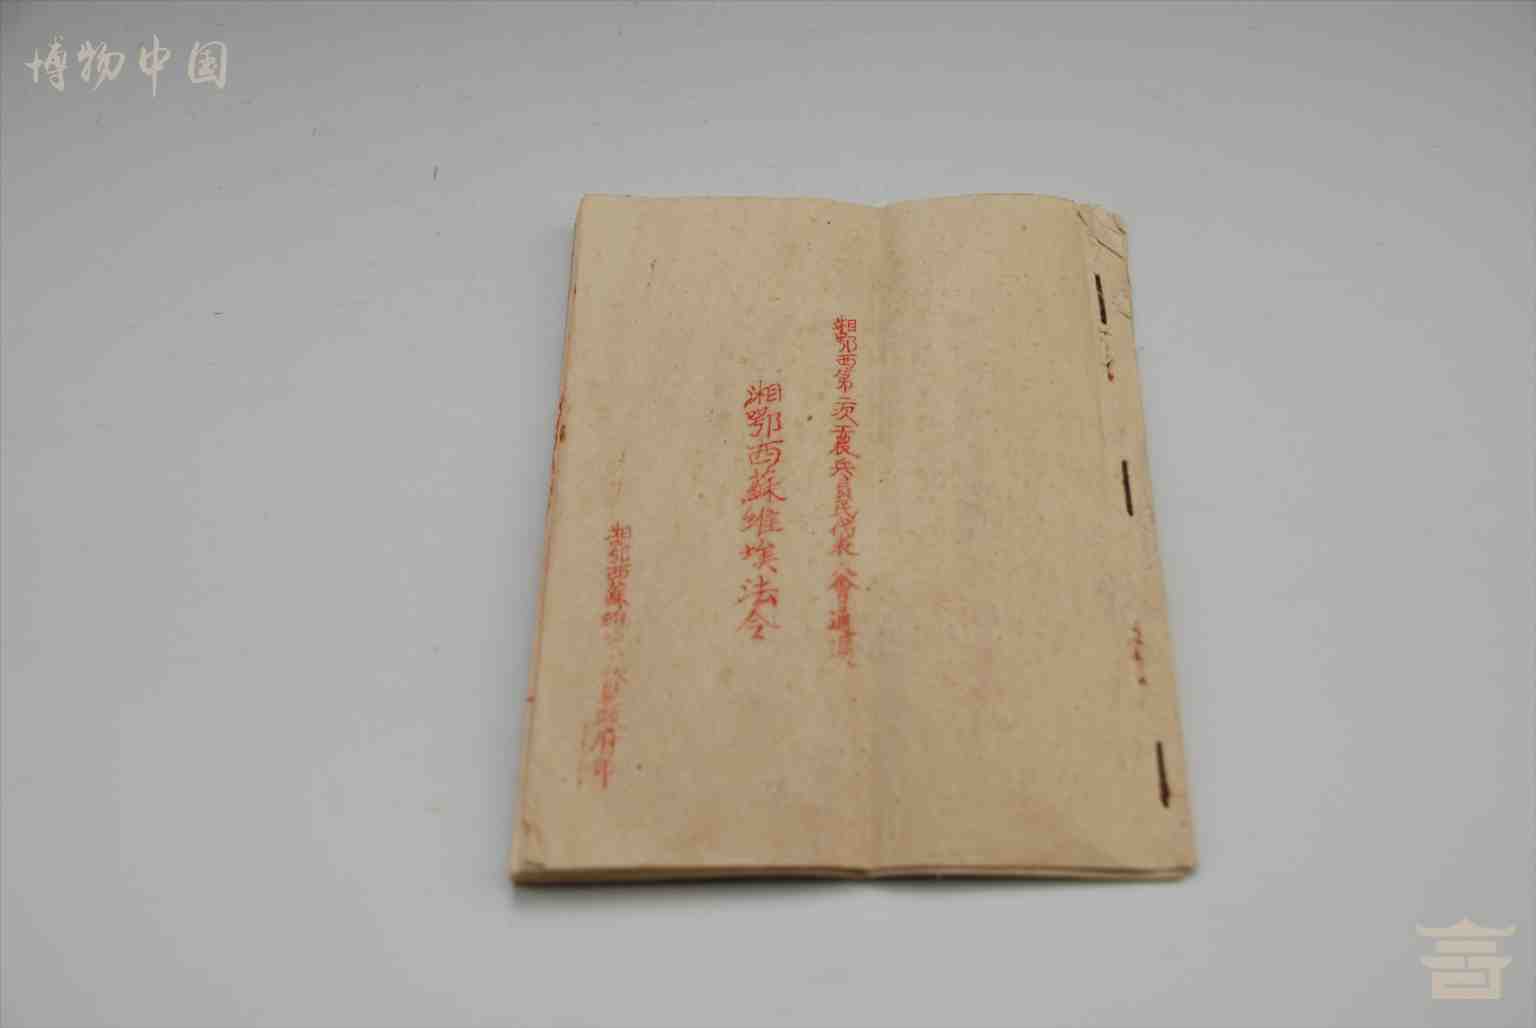 博物中国
湘鄂西第二次工農兵貧民代表大會通過
湘鄂西蘇維埃法令
湘鄂西蘇維府印